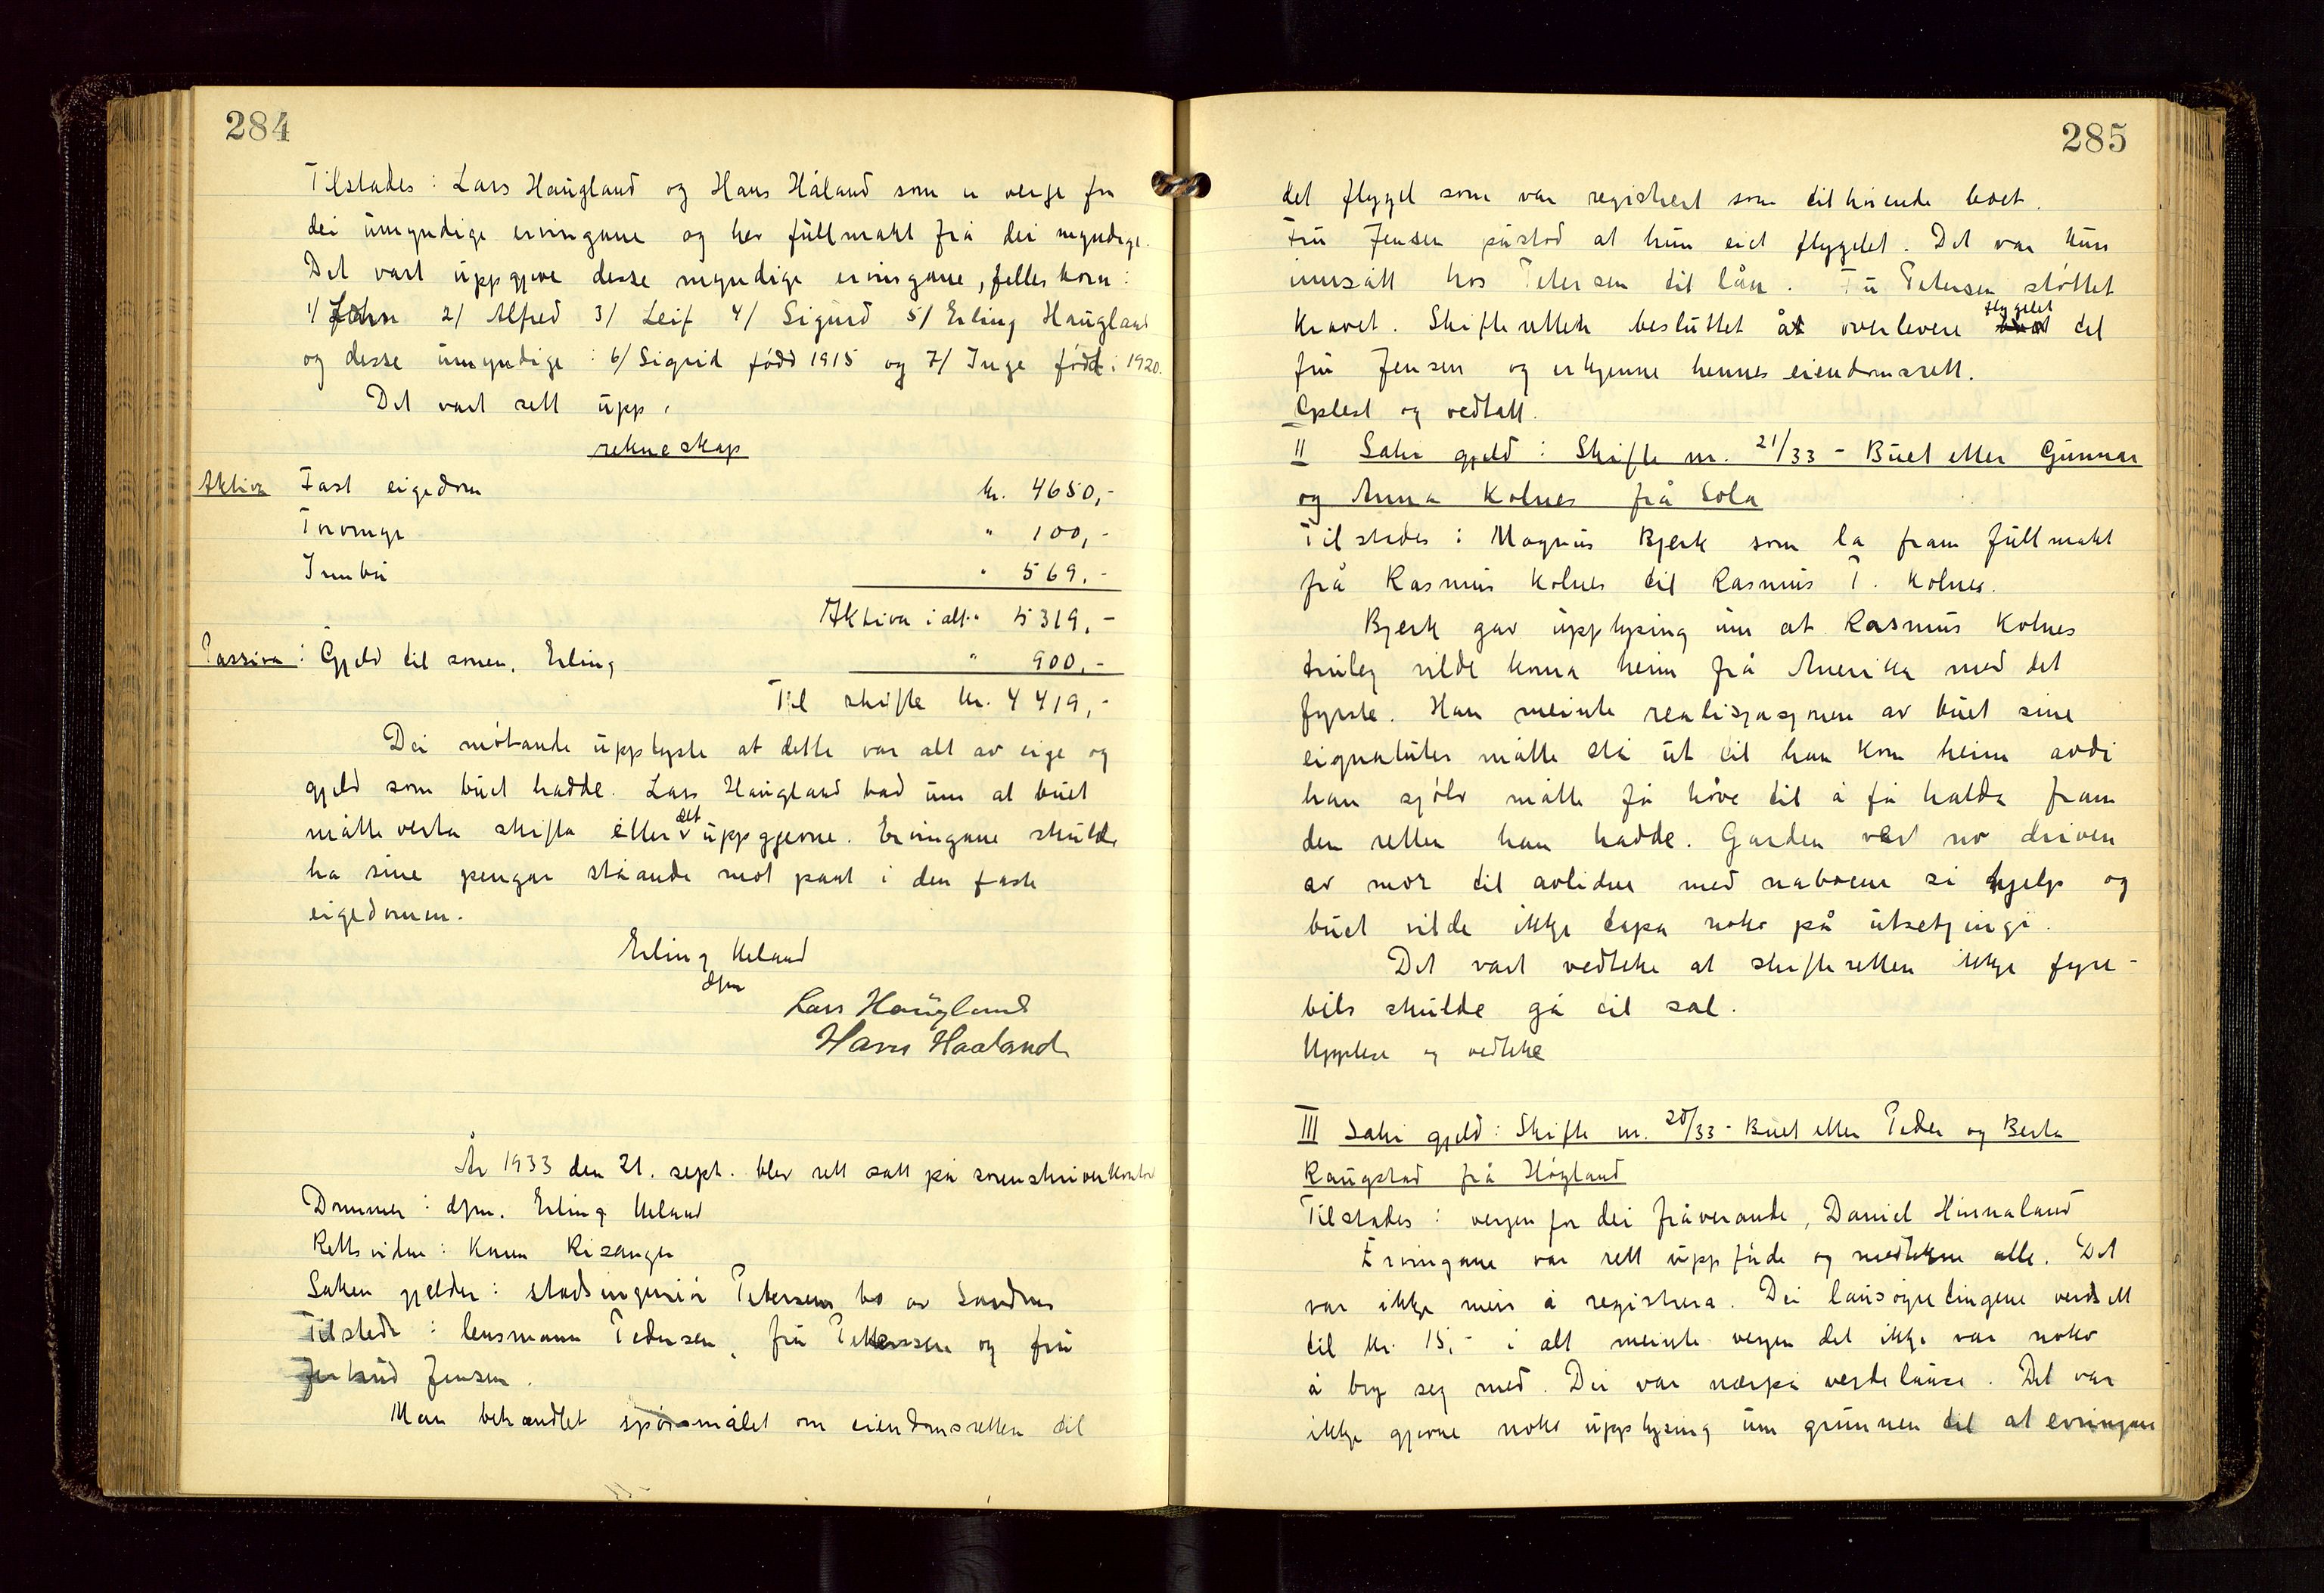 284
Tilstades: Lars Haugland og Hans Håland som er verge for
dei umyndige ervingane og hev fullmakt frå dei myndige.
Det vart uppgjeve desse myndige ervingane, felles born:
1/ John 2/ Alfred 3/ Leif 4/ Sigurd 5/ Erling Haugland
og desse umyndige: 6/ Sigrid född 1915 og 7/ Inge född i 1920.
Det vart sett upp.
rekneskap
Aktiva Fast eigedom kr. 4650,-
Torvinge " 100,-
Innbu " 569,-
Aktiva i alt " 5319,-
Passiva: Gjeld til sonen, Erling " 900,-
Til skifte kr. 4419,-
Dei møtande upplyste at dette var alt av eige og
gjeld som buet hadde. Lars Haugland bad um at buet
måtte verta skifta etter det uppgjevne. Ervingane skulde
ha sine pengar ståande mot pant i den faste
eigedomen.
Erling Ueland
dfm
Lars Haugland
Hans Haaland
År 1933 den 21. sept. blev rett satt på sorenskriverkontor
Dommer: dfm. Erling Ueland
Rettsvidne: Karen Risanger
Saken gjelder: stadsingeniør Petersens bo av Sandnes
Tilstede: lensmann Pedersen, fru Petersen og fru
Jensen.
Man behandlet spørsmålet om eiendomsretten til
285
det flygel som var registrert som tilhørende boet.
Fru Jensen påstod at hun eiet flygelet. Det var kun
innsatt hos Petersen til lån. Fru Petersen støttet
kravet. Skifteretten besluttet å overlevere flygelet til
fru Jensen og erkjenne hennes eiendomsrett.
Oplest og vedtatt.
II Saki gjeld: Skifte nr. 21/33 - Buet etter Gunnar
og Anna Kolnes frå Sola
Tilstades: Magnus Bjerk som la fram fullmakt
frå Rasmus Kolnes til Rasmus T. Kolnes.
Bjerk gav upplysing um at Rasmus Kolnes
truleg vilde koma heim frå Amerika med det
fyrste. Han meinte realisasjonen av buet sine
eignaluter måtte stå ut til han kom heim avdi
han sjølv måtte få høve til å få halda fram
den retten han hadde. Garden vert no driven
av mor til avlidne med naboene si hjelp og
buet vilde ikkje tapa noko på utsetjingi.
Det vart vedteke at skifteretten ikkje fyre-
bils skulde gå til sal.
Upplese og vedteke
III Saki gjeld: Skifte nr. 20/33 - Buet etter Peder og Berta
Raugstad frå Høgland
Tilstades: vergen for dei fråverande, Daniel Hinnaland
Ervingane var rett uppførde og medtekne alle. Det
var ikkje meir å registrera. Dei lausøyretingene verdsett
til kr. 15,- i alt meinte vergen det ikkje var noko
å bry seg med. Dei var nærpå verdelause. Det var
ikkje gjevne noko upplysing um grunnen til at ervingane